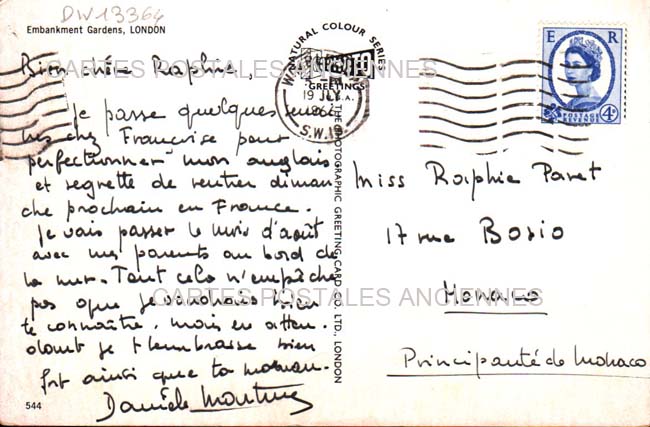 DW13364
Embankment Gardens, LONDON
Bien chère Raphie,
Je passe quelques semai
nes chez Françoise pour
perfectionner mon anglais
et regrette de rentrer diman
che prochain en France.
Je vais passer le mois d'août
avec mes parents au bord de
la mer. Tout cela n'empêche
pas que je voudrais bien
te connaître, mais en atten
dant je t'embrasse bien
fort ainsi que ta maman.
Danièle
544
NATURAL COLOUR SERIES
GREETINGS
THE PHOTOGRAPHIC GREETING CARD CO., LTD., LONDON
19 JLY
S.W.19
E R
POSTAGE
REVENUE
4D
Miss Raphie Paret
17 rue Bosio
Monaco
Principauté de Monaco
CARTES POSTALES ANCIENNES
CARTES POSTALES ANCIENNES